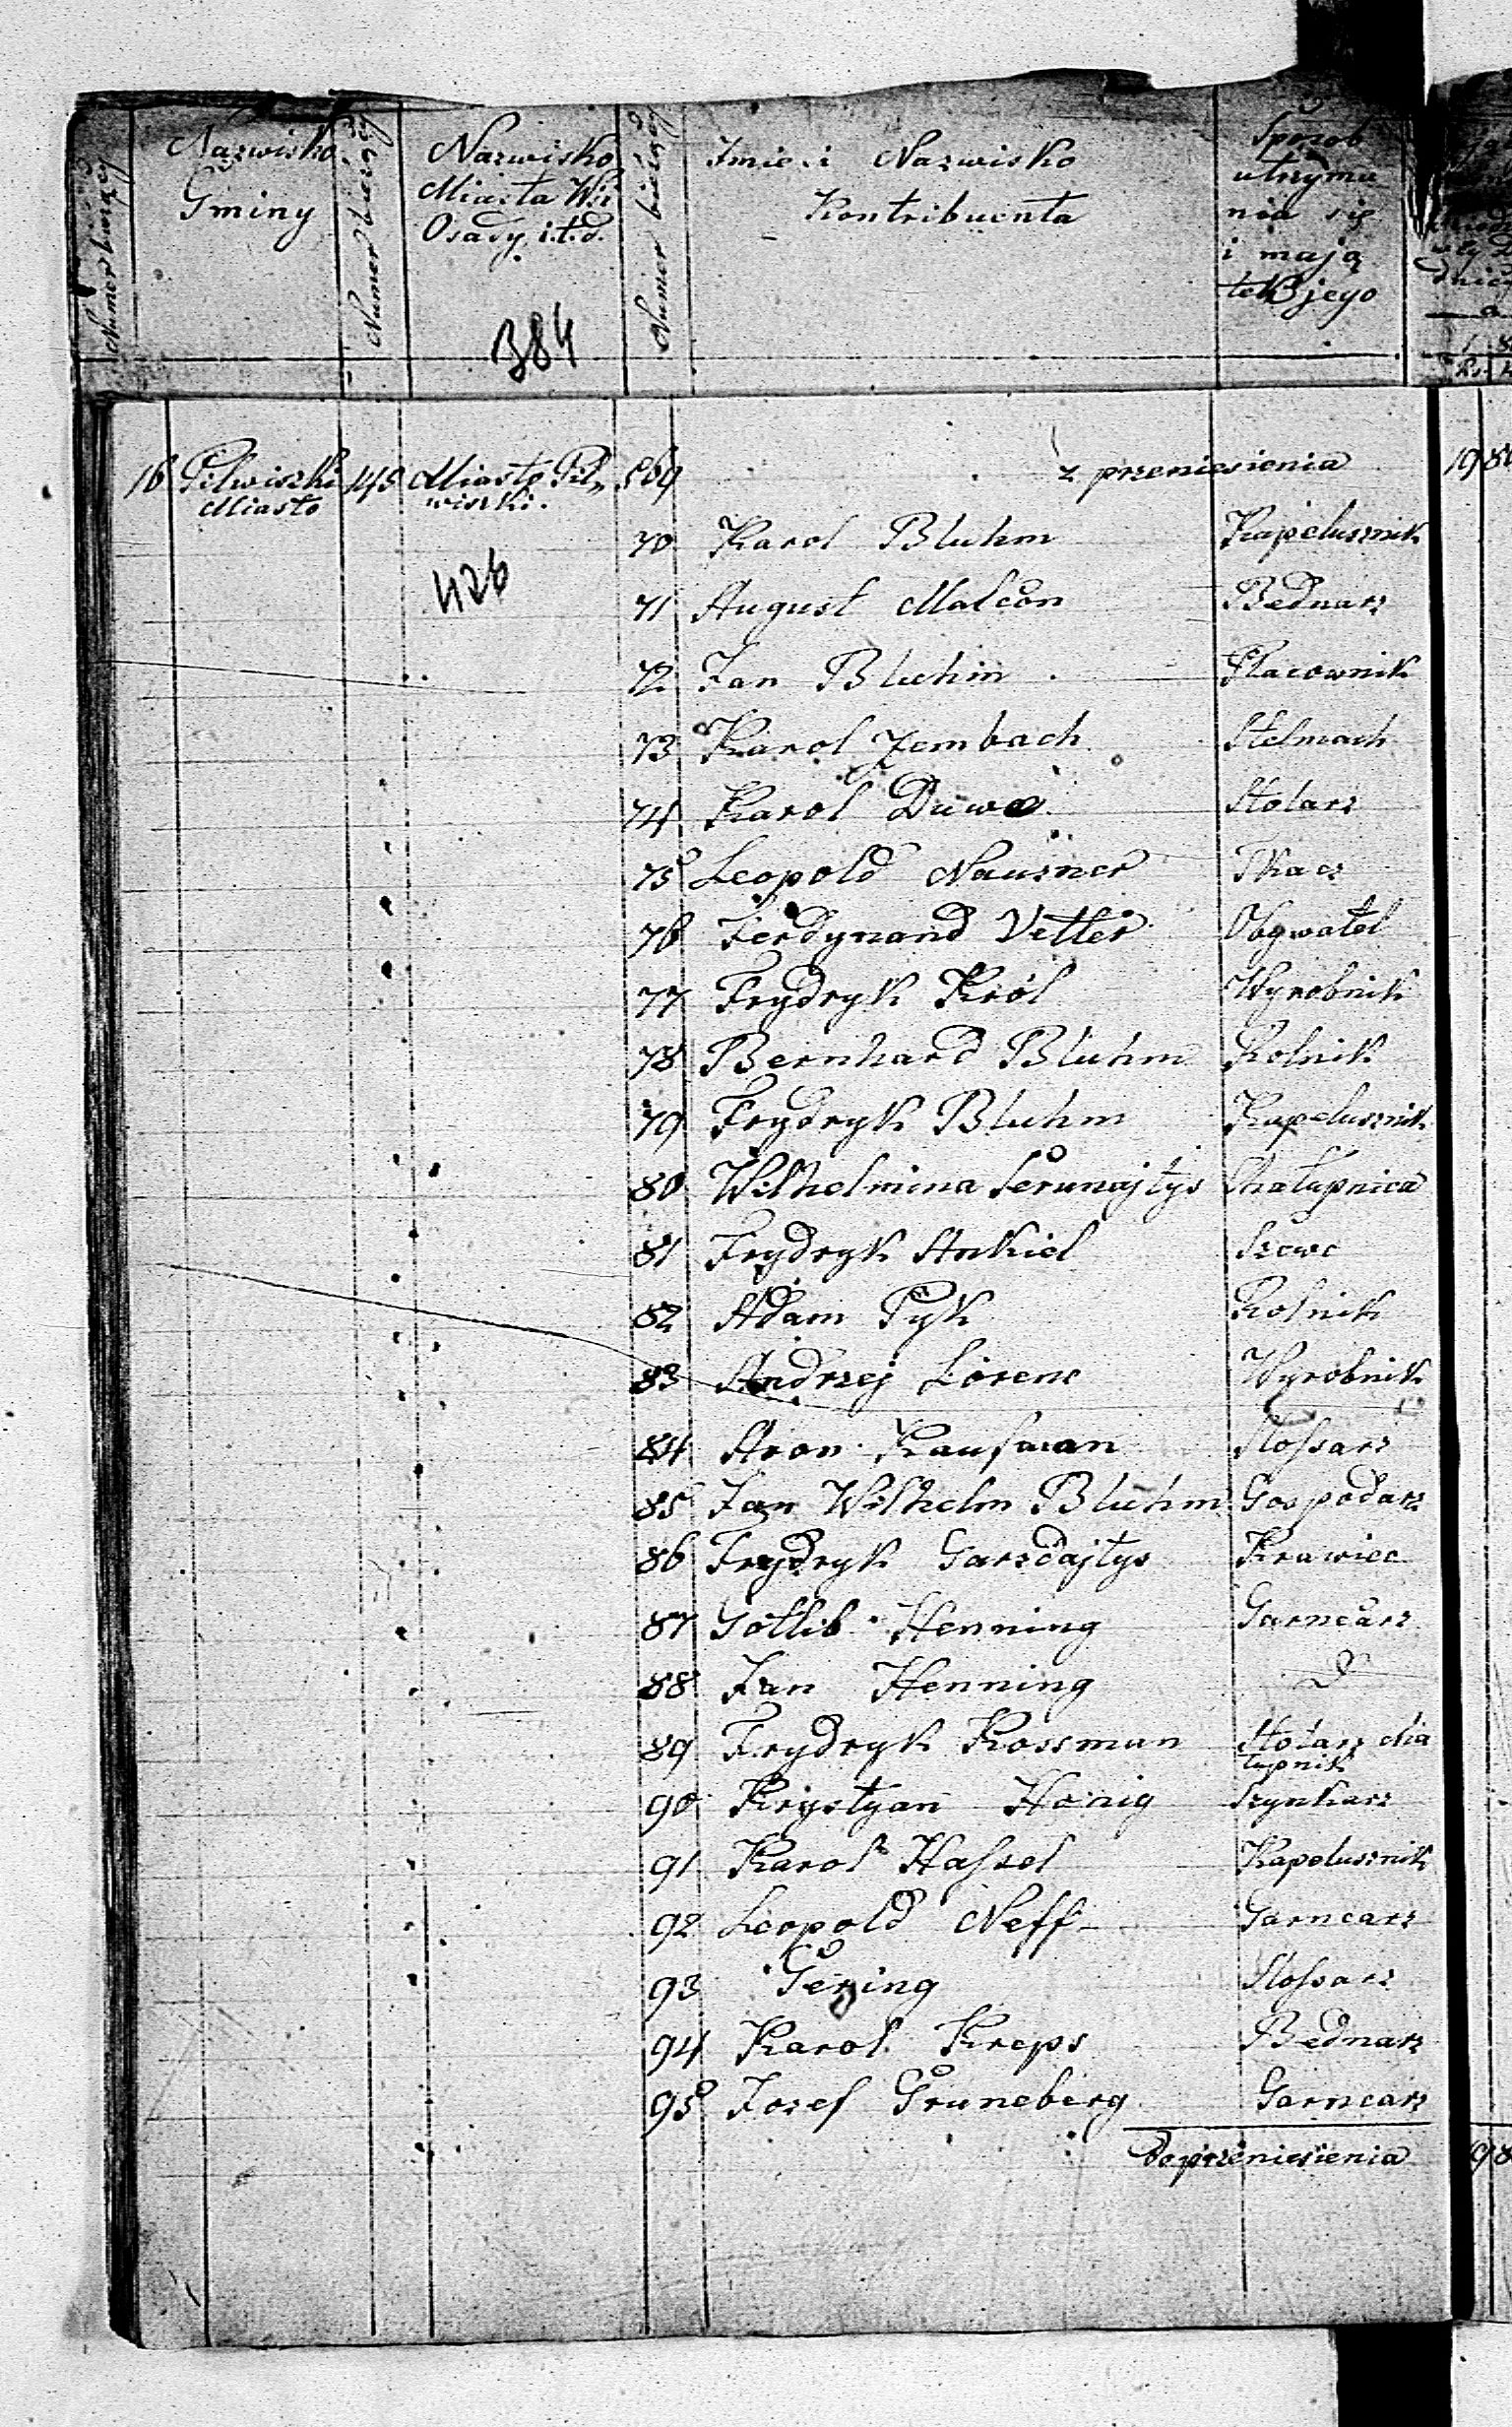 Numer bieżący
Nazwisko
Gminy
Numer bieżący
Nazwisko
Miasta Wsi
Osady i.t.d.
384
Numer bieżący
Imie i Nazwisko
Kontribuenta
Sposob
utrzyma
nia się
i mają
tek jego
16 Pilwiszki 145 Miasto Pil 569 z przeniesienia 198
Miasto wiszki.
426
70 Karol Bluhm Kapelusznik
71 August Malcon Bednarz
72 Jan Bluhm Placownik
73 Karol Zembach Stelmach
74 Karol Duwe Stolarz
75 Leopold Nausner Tkacz
76 Ferdynand Vetter Obywatel
77 Frydryk Król Wyrobnik
78 Bernhard Bluhm Rolnik
79 Frydryk Bluhm Kapelusznik
80 Wilhelmina Perunajtys Chałupnica
81 Frydryk Ankiel Szewc
82 Adam Pyk Rolnik
83 Andrzej Lorenc Wyrobnik
84 Aron Kaufman Slossarz
85 Jan Wilhelm Bluhm Gospodarz
86 Frydryk Garzdajtys Krawiec
87 Gottlib Henning Garncarz
88 Jan Henning D
89 Frydryk Kossman Stolarz cha
łupnik
90 Krystyan Honig Szynkarz
91 Karol Hassel Kapelusznik
92 Leopold Neff Garncarz
93 Gering Slossarz
94 Karol Kreps Bednarz
95 Jozef Gruneberg Garncarz
Do przeniesienia 198